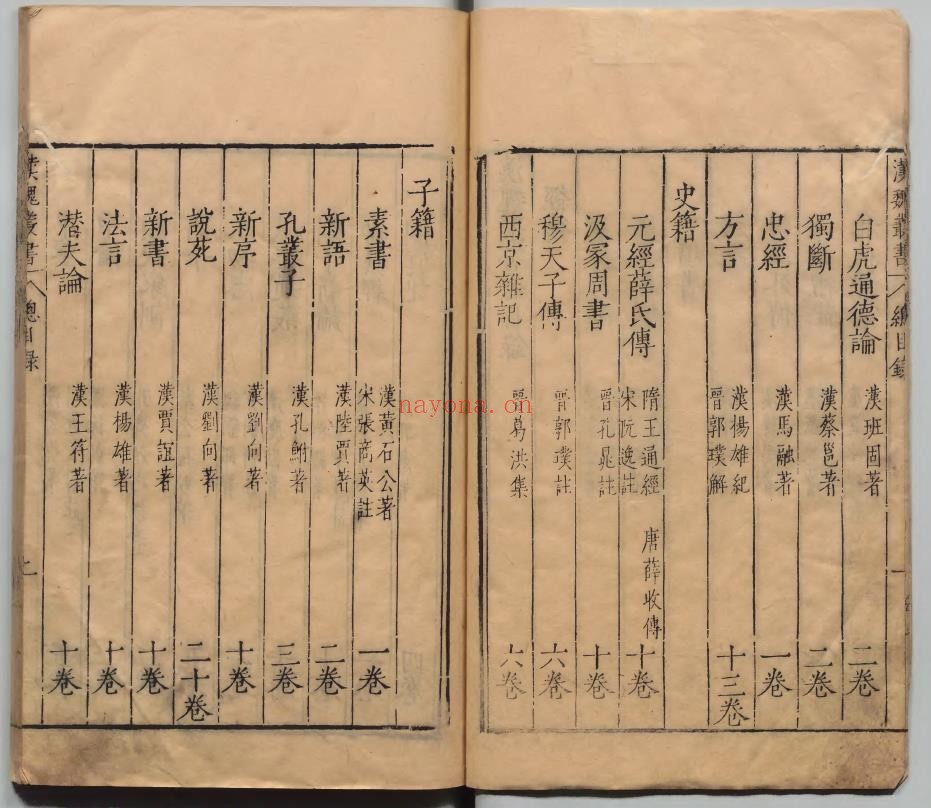 漢魏叢書 總目錄 一
白虎通德論 漢班固著 二卷
獨斷 漢蔡邕著 二卷
忠經 漢馬融著 一卷
方言 漢楊雄紀 晉郭璞解 十三卷
史籍
元經薛氏傳 隋王通經 唐薛收傳 宋阮逸註 十卷
汲冢周書 晉孔晁註 十卷
穆天子傳 晉郭璞註 六卷
西京雜記 晉葛洪集 六卷
子籍
素書 漢黃石公著 宋張商英註 一卷
新語 漢陸賈著 二卷
孔叢子 漢孔鮒著 三卷
新序 漢劉向著 十卷
說苑 漢劉向著 二十卷
新書 漢賈誼著 十卷
法言 漢楊雄著 十卷
潛夫論 漢王符著 十卷
漢魏叢書 總目錄
nayona.cn